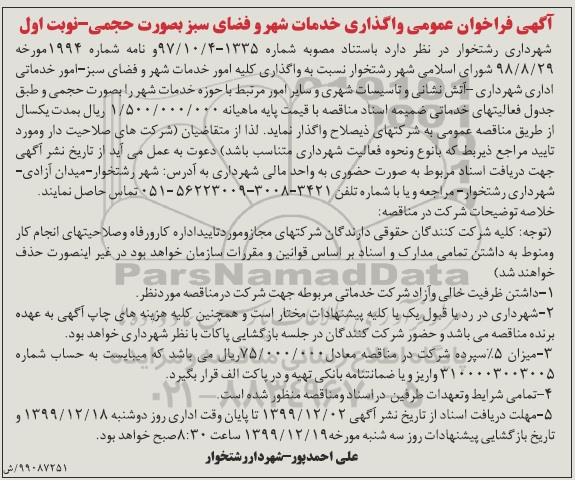 آگهی فراخوان عمومی واگذاری خدمات شهر و فضای سبز بصورت حجمی-نوبت اول
شهرداری رشتخوار در نظر دارد باستناد مصوبه شماره ۱۳۳۵-۹۷/۱۰/۴ و نامه شماره ۱۹۹۴مورخه
۹۸/۸/۲۹ شورای اسلامی شهر رشتخوار نسبت به واگذاری کلیه امور خدمات شهر و فضای سبز-امور خدماتی
اداری شهرداری -آتش نشانی و تاسیسات شهری و سایر امور مرتبط با حوزه خدمات شهر را بصورت حجمی و طبق
جدول فعالیتهای خدماتی ضمیمه اسناد مناقصه با قیمت پایه ماهیانه ۱/۵۰۰/۰۰۰/۰۰۰ ریال بمدت یکسال
از طریق مناقصه عمومی به شرکتهای ذیصلاح واگذار نماید. لذا از متقاضیان (شرکت های صلاحیت دار ومورد
تایید مراجع ذیربط که بانوع ونحوه فعالیت شهرداری متناسب باشد) دعوت به عمل می آید از تاریخ نشر آگهی
جهت دریافت اسناد مربوط به صورت حضوری به واحد مالی شهرداری به آدرس: شهر رشتخوار-میدان آزادی-
شهرداری رشتخوار- مراجعه و یا با شماره تلفن ۳۴۲۱-۳۰۰۸-۵۶۲۲۳۰۰۹-۰۵۱ تماس حاصل نمایند.
خلاصه توضیحات شرکت در مناقصه:
(توجه: کلیه شرکت کنندگان حقوقی دارندگان شرکتهای مجازوموردتاییداداره کارورفاه وصلاحیتهای انجام کار
ومنوط به داشتن تمامی مدارک و اسناد بر اساس قوانین و مقررات سازمان خواهد بود در غیر اینصورت حذف
خواهند شد)
۱-داشتن ظرفیت خالی وآزاد شرکت خدماتی مربوطه جهت شرکت درمناقصه موردنظر.
۲-شهرداری در رد یا قبول یک یا کلیه پیشنهادات مختار است و همچنین کلیه هزینه های چاپ آگهی به عهده
برنده مناقصه می باشد و حضور شرکت کنندگان در جلسه بازگشایی پاکات با نظر شهرداری خواهد بود.
۳-میزان ۵٪سپرده شرکت در مناقصه معادل۷۵/۰۰۰/۰۰۰ریال می باشد که میبایست به حساب شماره
۳۱۰۰۰۰۳۰۰۳۰۰۵ واریز و یا ضمانتنامه بانکی تهیه و در پاکت الف قرار بگیرد.
۴-تمامی شرایط وتعهدات طرفین دراسناد ومناقصه منظور شده است.
۵-مهلت دریافت اسناد از تاریخ نشر آگهی ۱۳۹۹/۱۲/۰۲ تا پایان وقت اداری روز دوشنبه ۱۳۹۹/۱۲/۱۸ و
تاریخ بازگشایی پیشنهادات روز سه شنبه مورخه ۱۳۹۹/۱۲/۱۹ ساعت ۸:۳۰صبح خواهد بود.
علی احمدپور-شهرداررشتخوار
۹۹۰۸۷۲۵۱/ش
ParsNamadData
۰۲۱-۸۸۳۴۹۶۷۰-۵